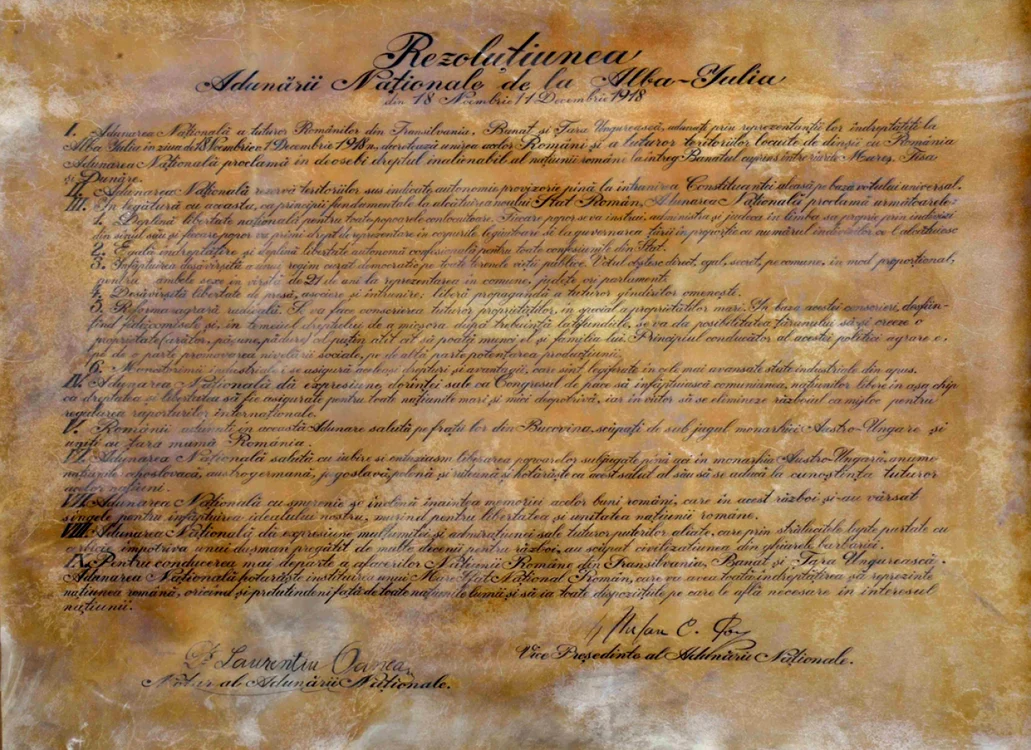 Rezoluțiunea
Adunării Naționale de la Alba-Iulia
din 18 Noembrie/1 Decembrie 1918
I. Adunarea Națională a tuturor Românilor din Transilvania, Banat și Țara Ungurească, adunați prin reprezentanții lor îndreptățiți la
Alba Iulia în ziua de 18 Noembrie/1 Decembrie 1918, decretează unirea acelor Români și a tuturor teritoriilor locuite de dînșii cu România
Adunarea Națională proclamă în deosebi dreptul inalienabil al națiunii române la întreg Banatul cuprins între rîurile Mureș, Tisa
și Dunăre.
II. Adunarea Națională rezervă teritoriilor sus indicate autonomie provizorie pînă la întrunirea Constituantei aleasă pe baza votului universal.
III. În legătură cu aceasta, ca principii fundamentale la alcătuirea noului Stat Român, Adunarea Națională proclamă următoarele:
1. Deplină libertate națională pentru toate popoarele conlocuitoare. Fiecare popor se va instrui, administra și judeca în limba sa proprie prin indivizi
din sînul său și fiecare popor va primi drept de reprezentare în corpurile legiuitoare și la guvernarea țării în proporție cu numărul indivizilor ce-l alcătuiesc
2. Egală îndreptățire și deplină libertate autonomă confesională pentru toate confesiunile din Stat.
3. Înfăptuirea desăvîrșită a unui regim curat democratic pe toate terenele vieții publice. Votul obștesc, direct, egal, secret, pe comune, în mod proporțional,
pentru ambele sexe în vîrstă de 21 de ani la reprezentarea în comune, județe ori parlament.
4. Desăvîrșită libertate de presă, asociere și întrunire; liberă propagandă a tuturor gîndirilor omenești.
5. Reforma agrară radicală. Se va face conscrierea tuturor proprietăților, în special a proprietăților mari. În baza acestei conscrieri, desfiin-
țînd fidelcomisele și, în temeiul dreptului de a micșora după trebuință latifundiile, se va da posibilitatea țăranului să-și creeze o
proprietate (arător, pășune, pădure) cel puțin atît cît să poată munci el și familia lui. Principiul conducător al acestei politici agrare e,
pe de o parte promovarea nivelării sociale, pe de altă parte potențarea producțiunii.
6. Muncitorimii industriale i se asigură aceleași drepturi și avantagii, care sînt legiferate în cele mai avansate state industriale din apus.
IV. Adunarea Națională dă expresiune dorinței sale ca Congresul de pace să înfăptuiască comuniunea națiunilor libere în așa chip
ca dreptatea și libertatea să fie asigurate pentru toate națiunile mari și mici deopotrivă, iar în viitor să se elimineze războiul ca mijloc pentru
regularea raporturilor internaționale.
V. Românii adunați în această Adunare salută pe frații lor din Bucovina, scăpați de sub jugul monarhiei Austro-Ungare și
uniți cu țara mumă România.
VI. Adunarea Națională salută cu iubire și entuziasm liberarea popoarelor subjugate pînă aci în monarhia Austro-Ungară, anume
națiunile cehoslovacă, austrogermană, jugoslavă, polonă și ruteană și hotărăște ca acest salut al său să se aducă la cunoștința tuturor
acelor națiuni.
VII. Adunarea Națională cu smerenie se închină înaintea memoriei acelor buni români, care în acest război și-au vărsat
sîngele pentru înfăptuirea idealului nostru, murind pentru libertatea și unitatea națiunii române.
VIII. Adunarea Națională dă expresiune mulțumitei și admirațiunei sale tuturor puterilor aliate, care prin strălucitele lupte purtate cu
cerbicie împotriva unui dușman pregătit de multe decenii pentru război, au scăpat civilizațiunea din ghiarele barbariei.
IX. Pentru conducerea mai departe a afacerilor Națiunii Române din Transilvania, Banat și Țara Ungurească,
Adunarea Națională hotărăște instituirea unui Mare Sfat Național Român, care va avea toată îndreptățirea să reprezinte
națiunea română, oricînd și pretutindeni față de toate națiunile lumii și să ia toate dispozițiile pe care le află necesare în interesul
națiunii.
Ștefan C. Pop
Vice Președinte al Adunării Naționale.
Dr Laurențiu Oanea
Notar al Adunării Naționale.